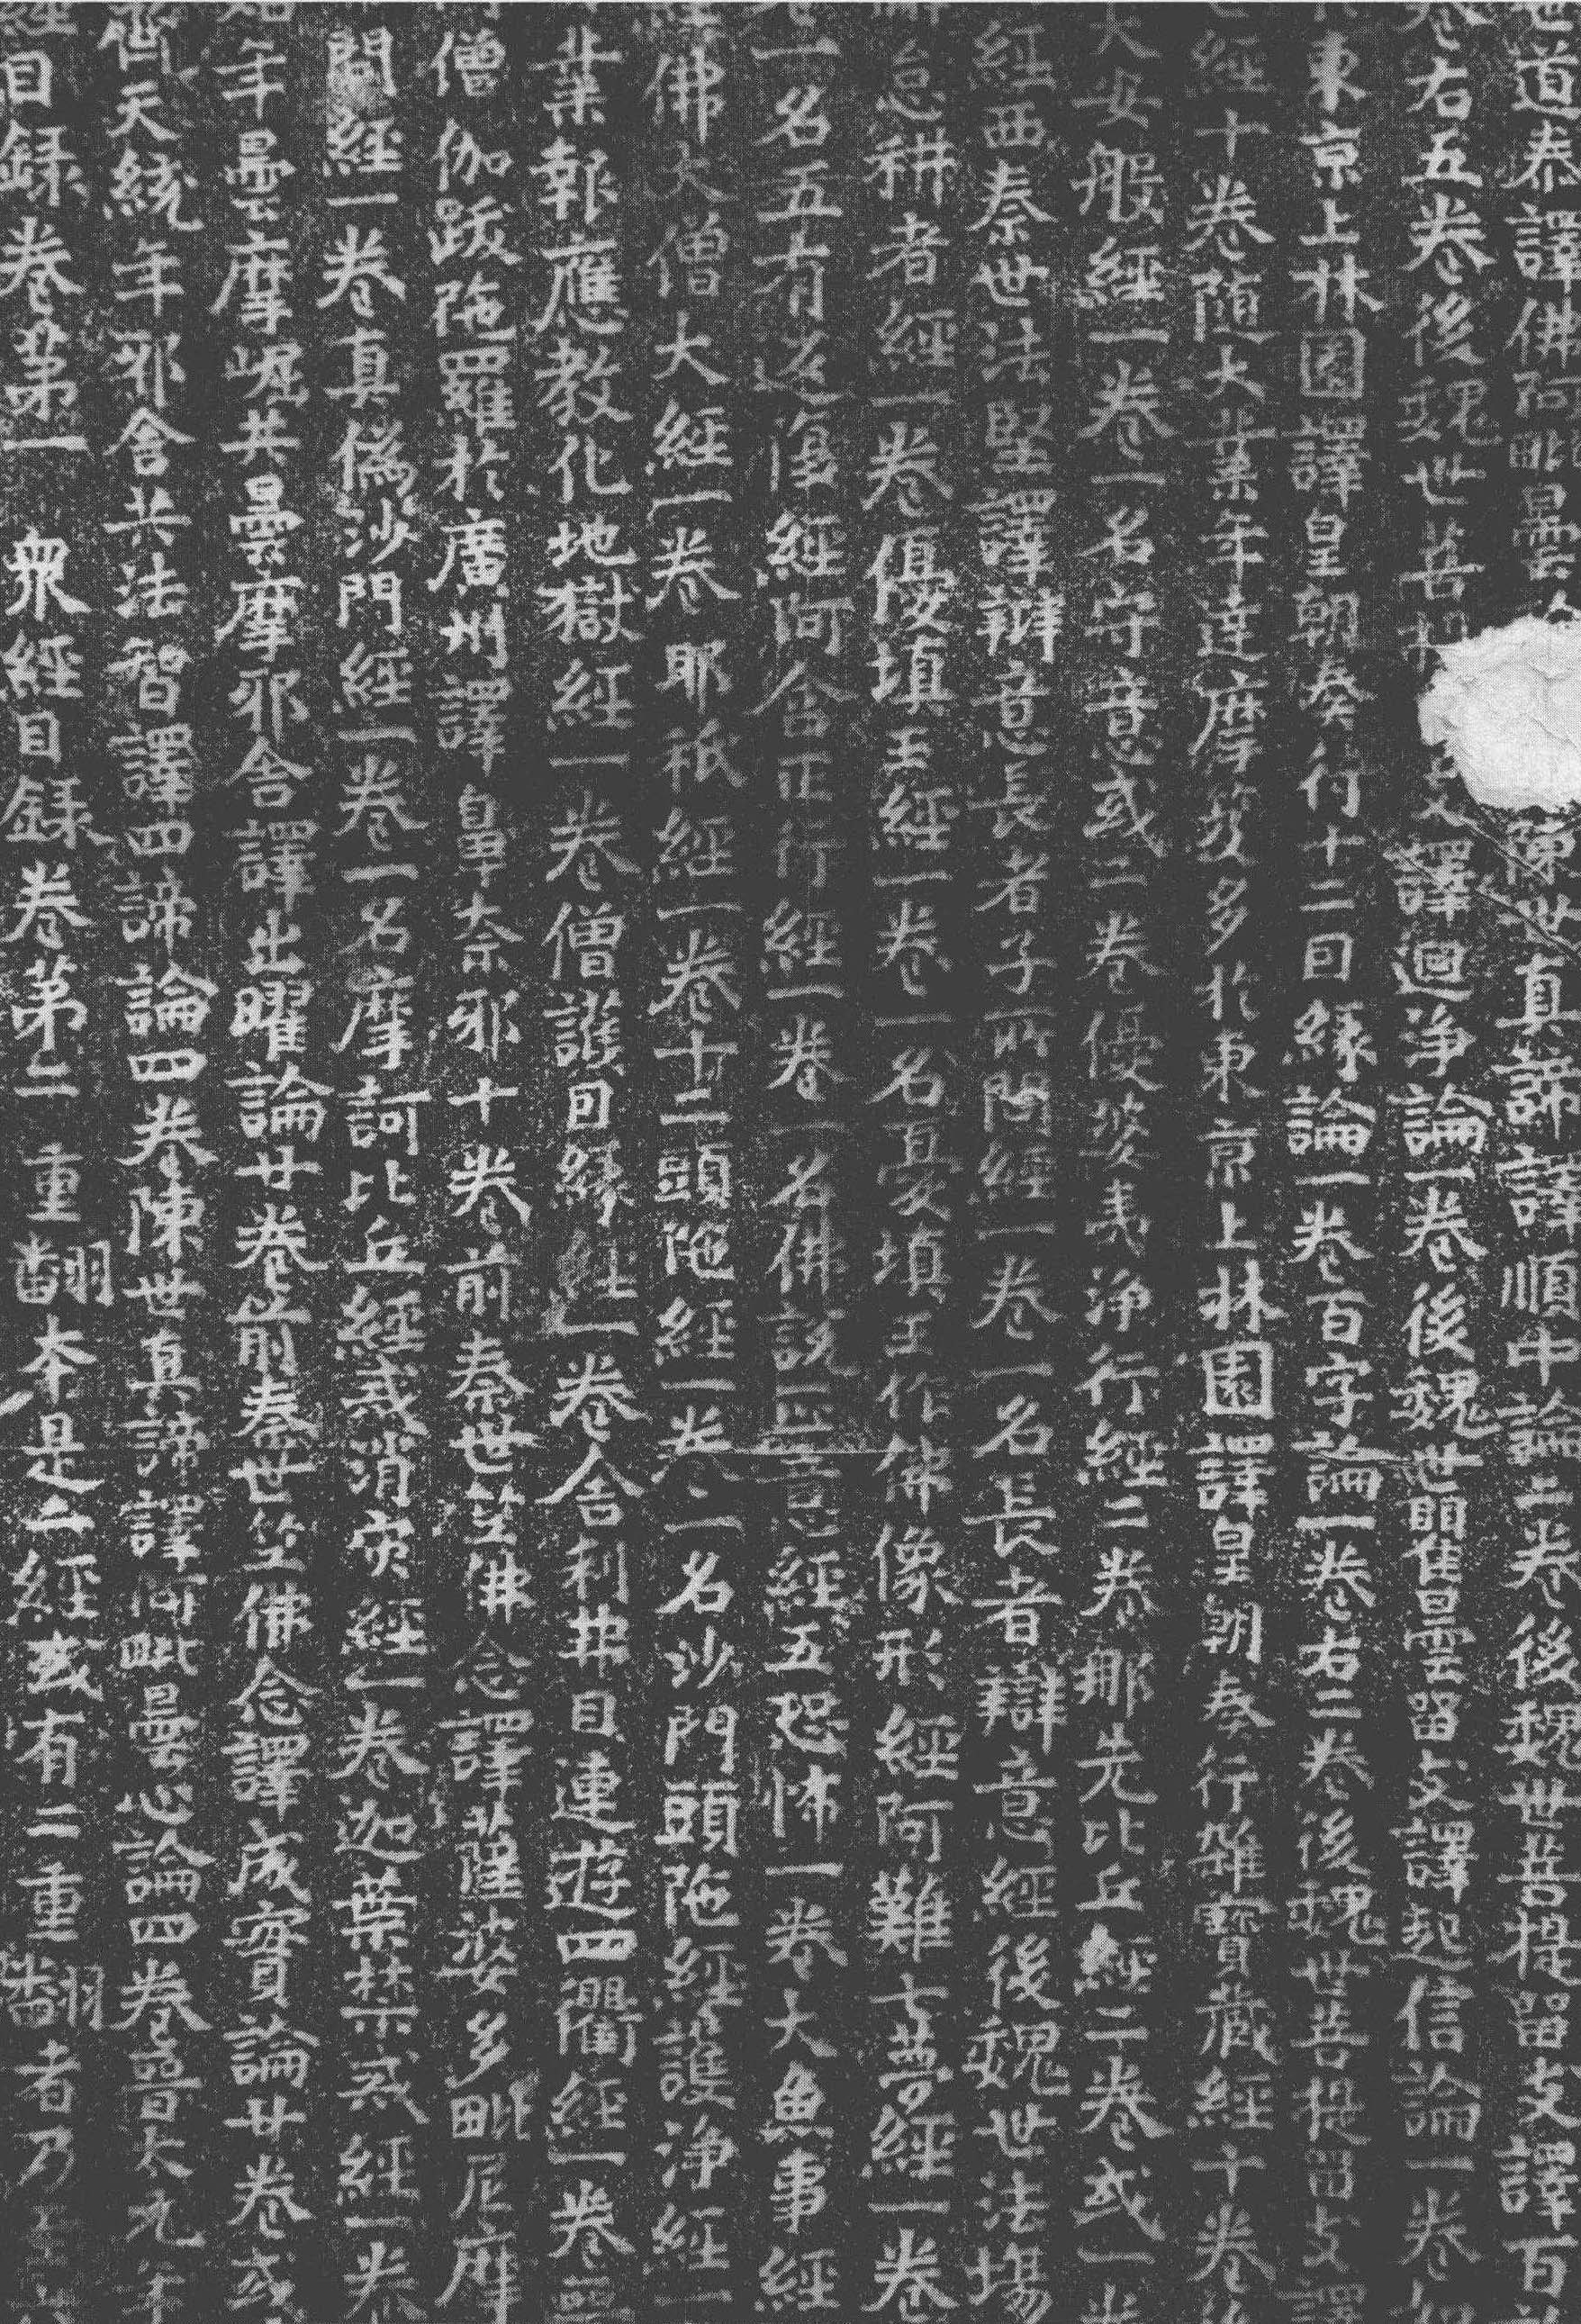 道泰譯佛阿毗曇 陳世真諦譯順中論二卷後魏世菩提留支譯百
卷右五卷後魏世菩 支譯迴諍論一卷後魏世瞿曇留支譯起信論一卷
東京上林園譯皇朝奏行十二因緣論一卷百字論一卷右二卷後魏世菩提留支譯
經十卷隨大業年達摩笈多於東京上林園譯皇朝奏行雜寶藏經十卷後
大安般經一卷一名守意或二卷優婆夷淨行經二卷那先比丘經二卷或一卷
經西秦世法堅譯辯意長者子所問經一卷一名長者辯意經後魏世法場
怠耕者經一卷優填王經一卷一名憂填王作佛像形經阿難七夢經一卷
一名五有返復經阿含正行經一卷一名佛說正意經五恐怖一卷大魚事經
佛大僧大經一卷耶祇經一卷十二頭陁經一卷一名沙門頭陁經護淨經一
業報應教化地獄經一卷僧護因緣經一卷舍利弗目連遊四衢經一卷
僧伽跋陁羅於廣州譯鼻奈耶十卷前秦世竺佛念譯薩婆多毗尼摩
問經一卷真偽沙門經一卷一名摩訶比丘經或消灾經一卷迦葉禁戒經一卷
年曇摩崛共曇摩耶舍譯出曜論廿卷前秦世竺佛念譯成實論廿卷或
齊天統年耶舍共法智譯四諦論四卷陳世真諦譯阿毗曇心論四卷晉太元年
經目録卷第一 衆經目録卷第二 重翻本是一經或有二重翻者乃至